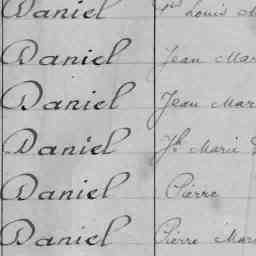 Daniel Louis
Daniel Jean Mar
Daniel Jean Mar
Daniel Jh Marie
Daniel Pierre
Daniel Pierre Mari